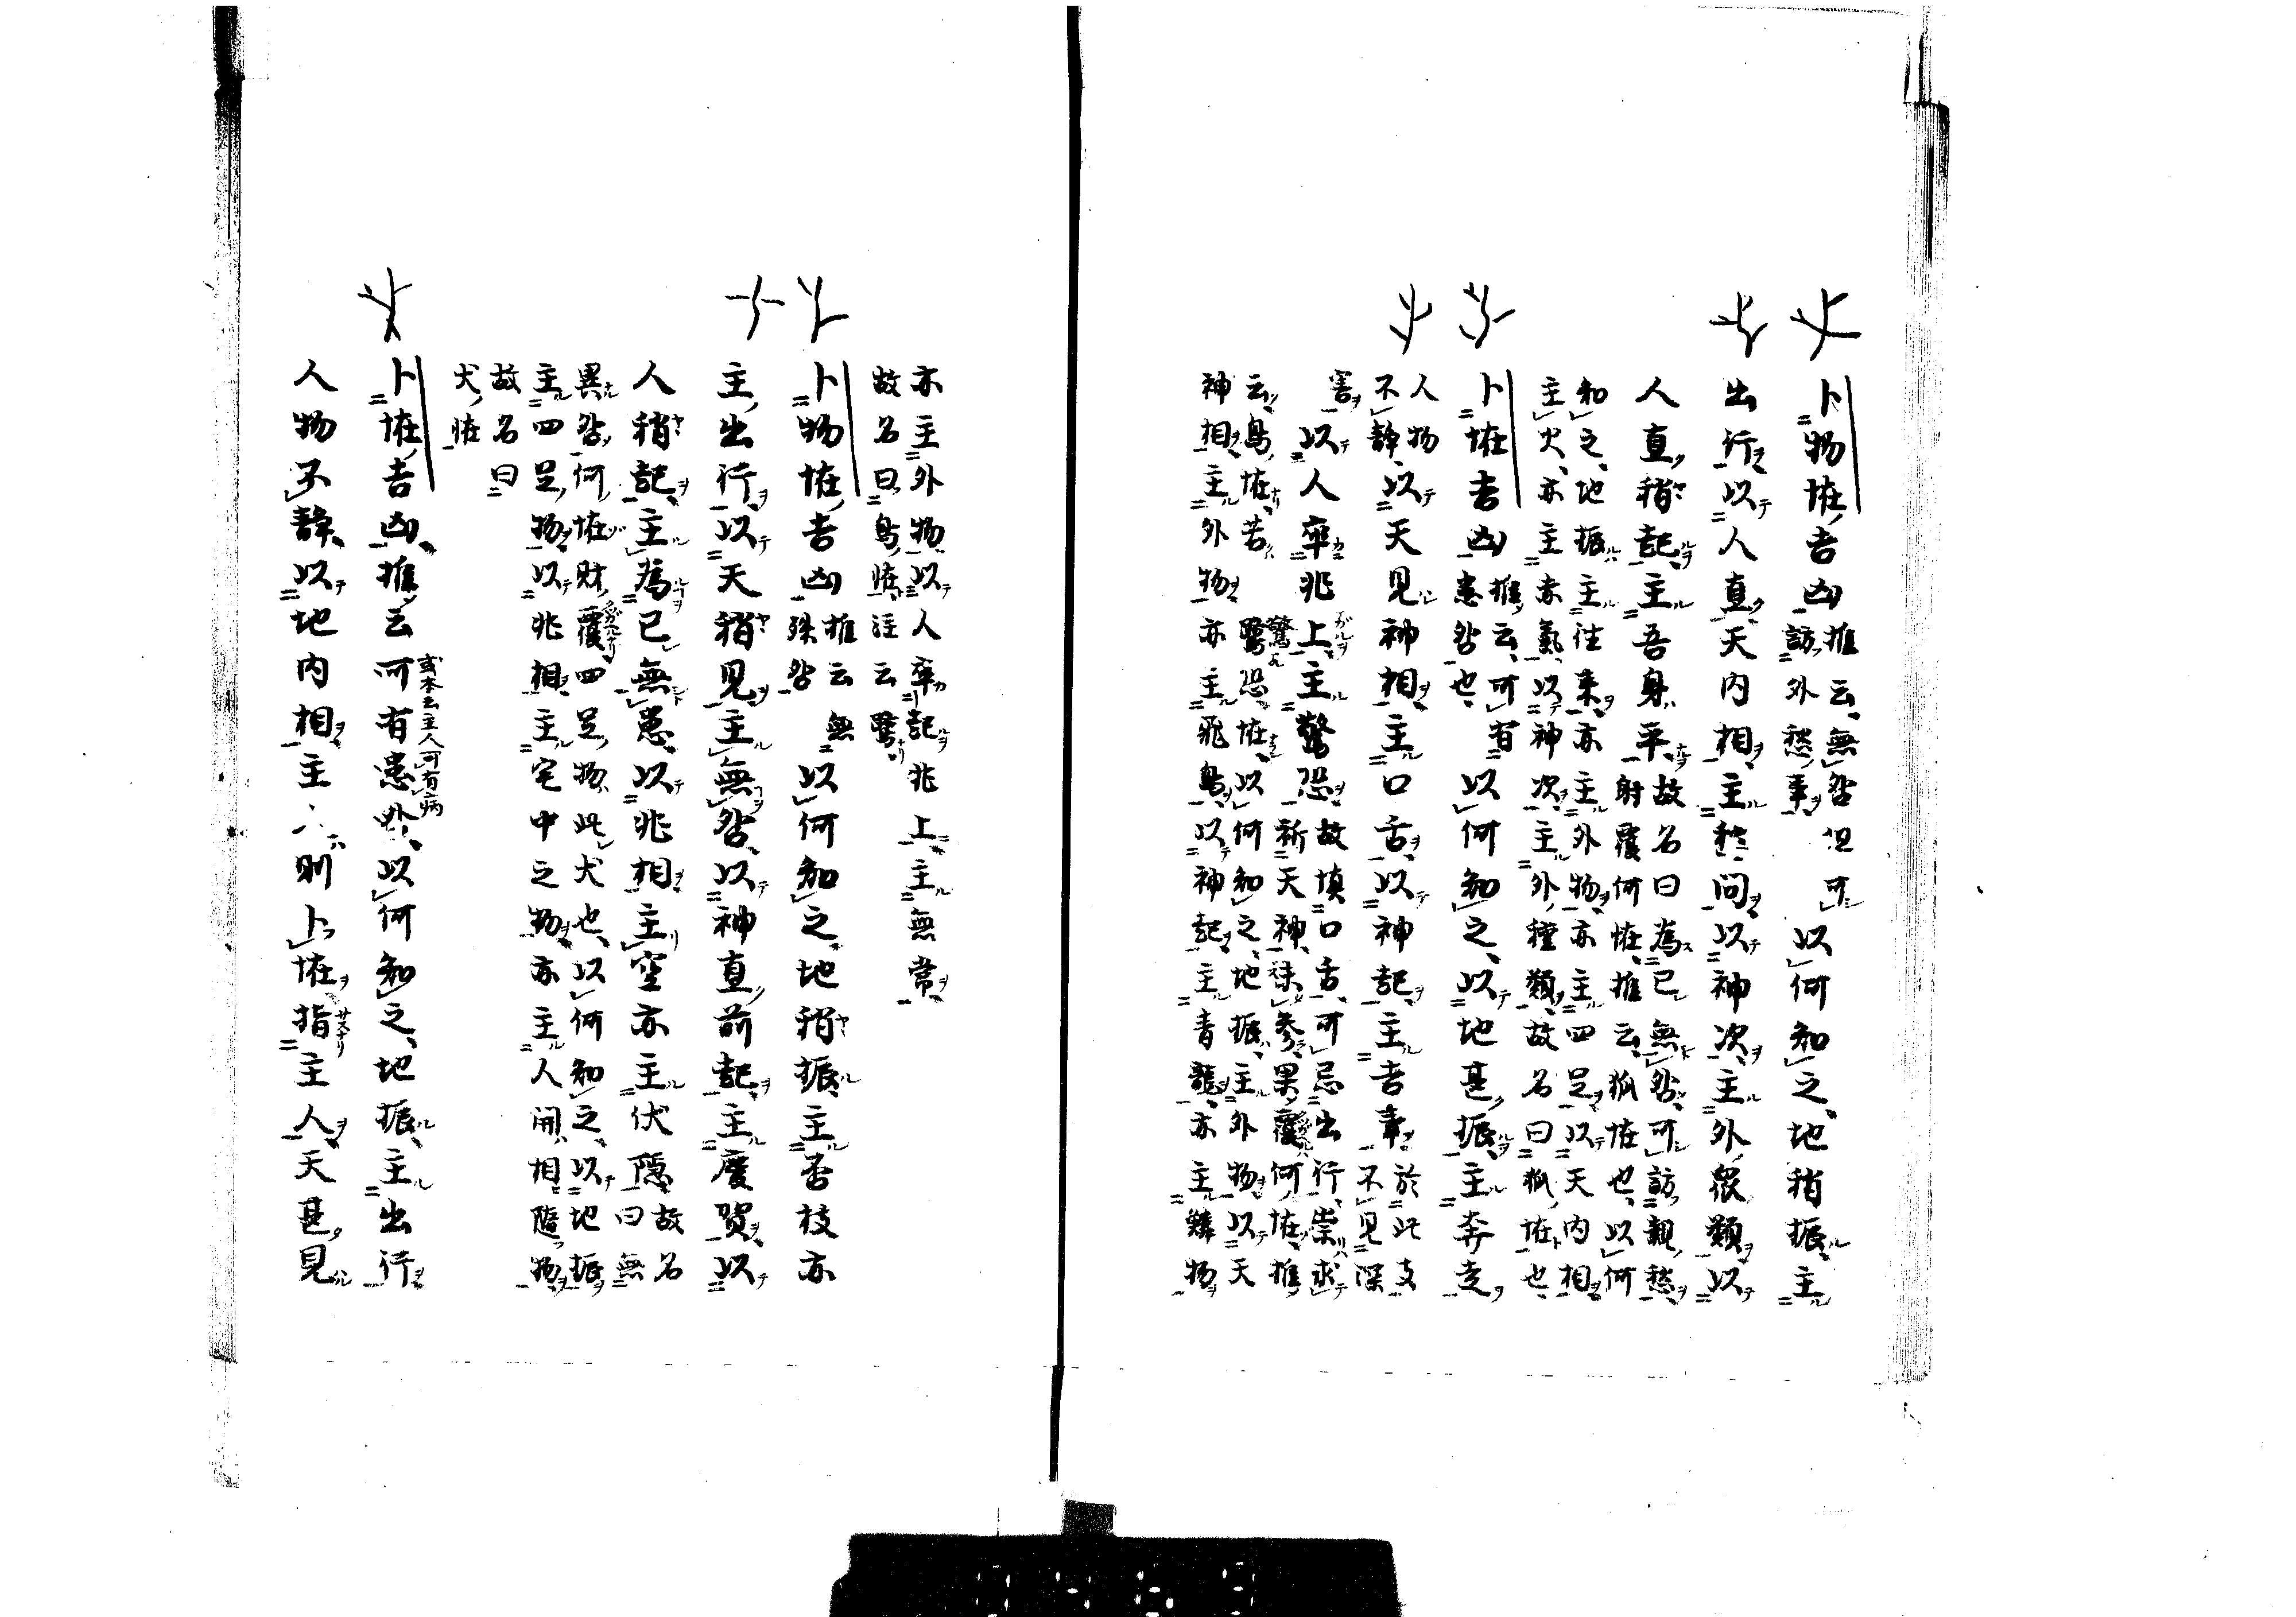 卜物恠吉凶推云無咎但可
訪外愁事以何知之地稍振主
出行以人直天内相主愁問以神次主外衆類以
人直稍起主吾身平故名曰為已無咎可訪親愁
射覆何恠推云狐恠也以何
知之地振主往来亦主外物亦主四足以天内相
主火亦主赤氣以神次主外種類故名曰狐恠也
卜恠吉凶推云可有
患咎也以何知之以地甚振主奔走
人物不静以天見神相主口舌以神起主吉事於此支
不見深
害以人率兆上主驚恐故慎口舌可忌出行崇求
祈天神未参果覆何恠推
云鳥恠若驚恐恠以何知之地振主外物以天
神相主外物亦主飛鳥以神起主青龍亦主鱗物
亦主外物以人率起兆上主無常
故名曰鳥恠注云驚
卜物恠吉凶推云無
殊咎以何知之地稍振主否技亦
主出行以天稍見主無咎以神直前起主慶賀以
人稍起主為已無患以兆相主空亦主伏隠故名
曰無
異咎何恠財覆四足物此犬也以何知之以地振
主四足物以兆相主宅中之物亦主人開相随物
故名曰
犬恠
卜恠吉凶推云可有患外以何知之地振主出行
或本云主人可有病
人物不静以地内相主則上恠指主人天甚見